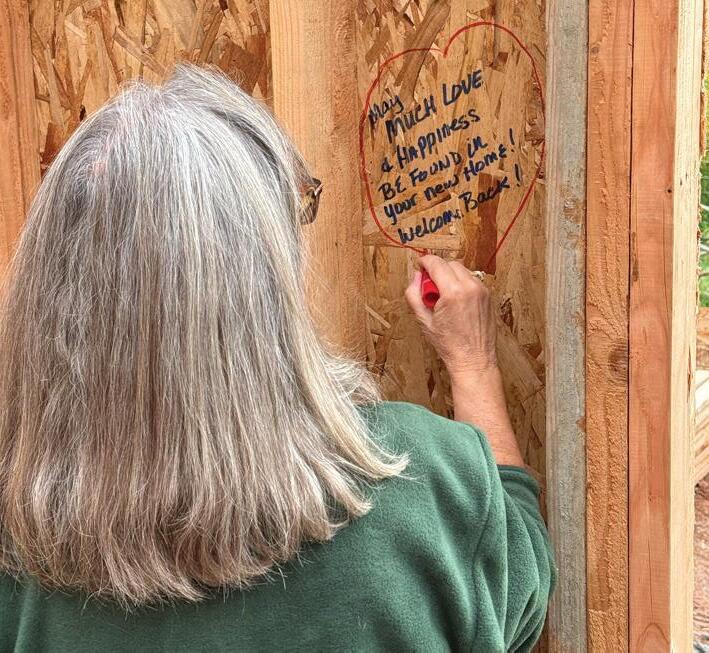 May
MUCH LOVE
& HAPPINESS
BE FOUND IN
your new Home!
Welcome Back!